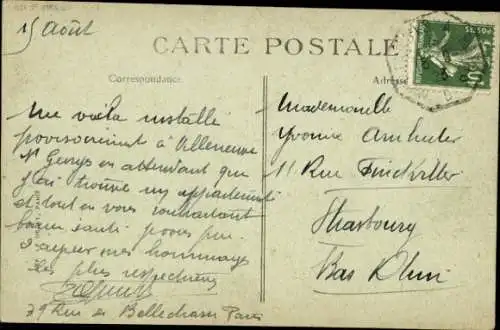 15 Août
CARTE POSTALE
Correspondance
Me voilà installé
provisoirement à Villeneuve
St Georges en attendant que
j'ai trouvé un appartement
et tout en vous souhaitant
bonne santé
mes hommages
les plus respectueux
79 Rue de Bellechasse Paris
Mademoiselle
Yvonne
11 Rue Finckviller
Strasbourg
Bas Rhin